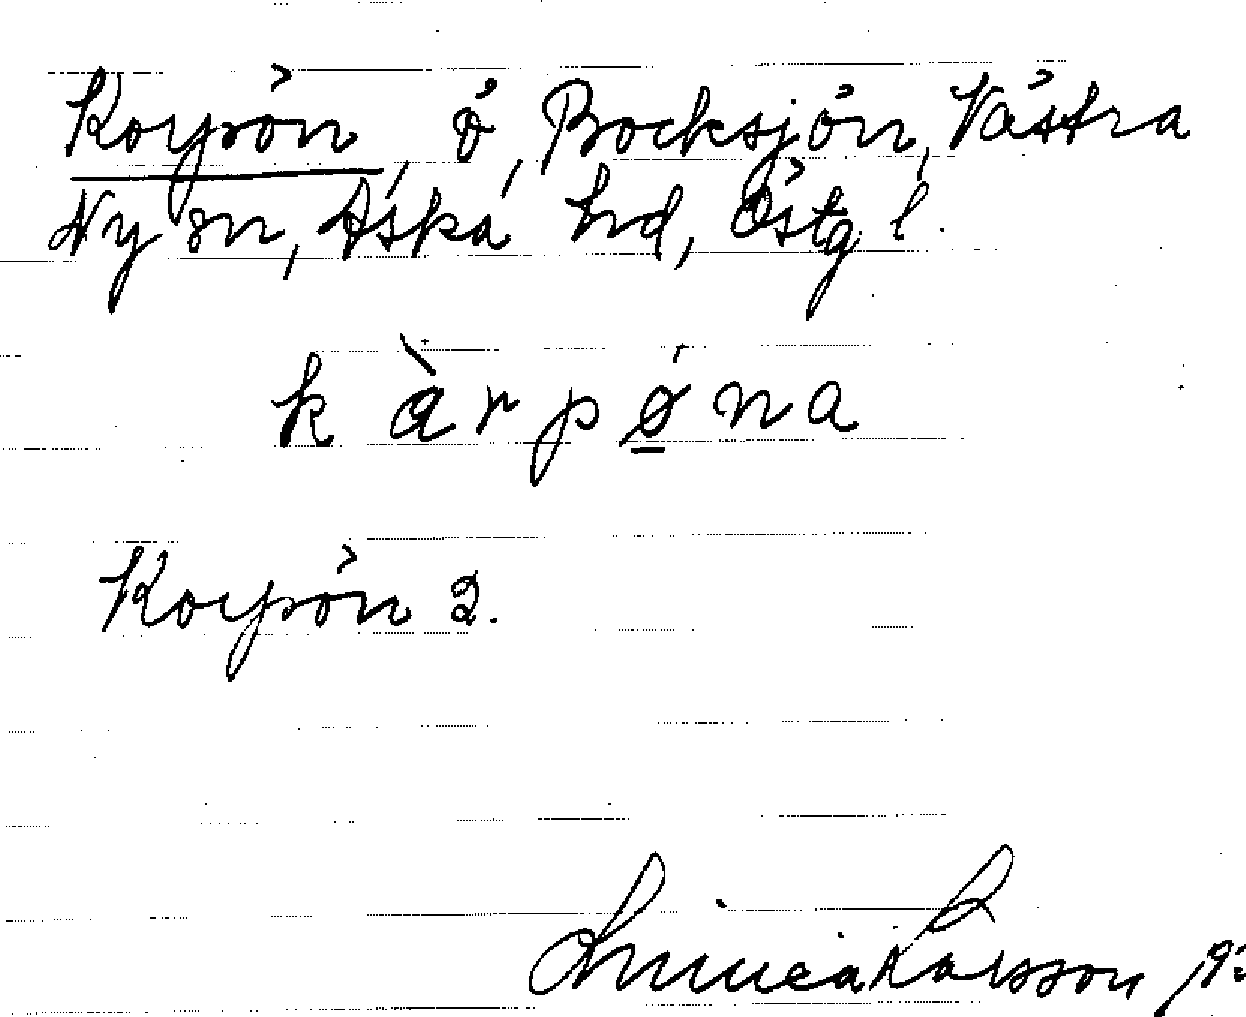 Korpön, ö, Bocksjön, Västra
Ny sn, Aska hd, Östg l.
k à r p ø n a
Korpön 2.
Linnea Larsson